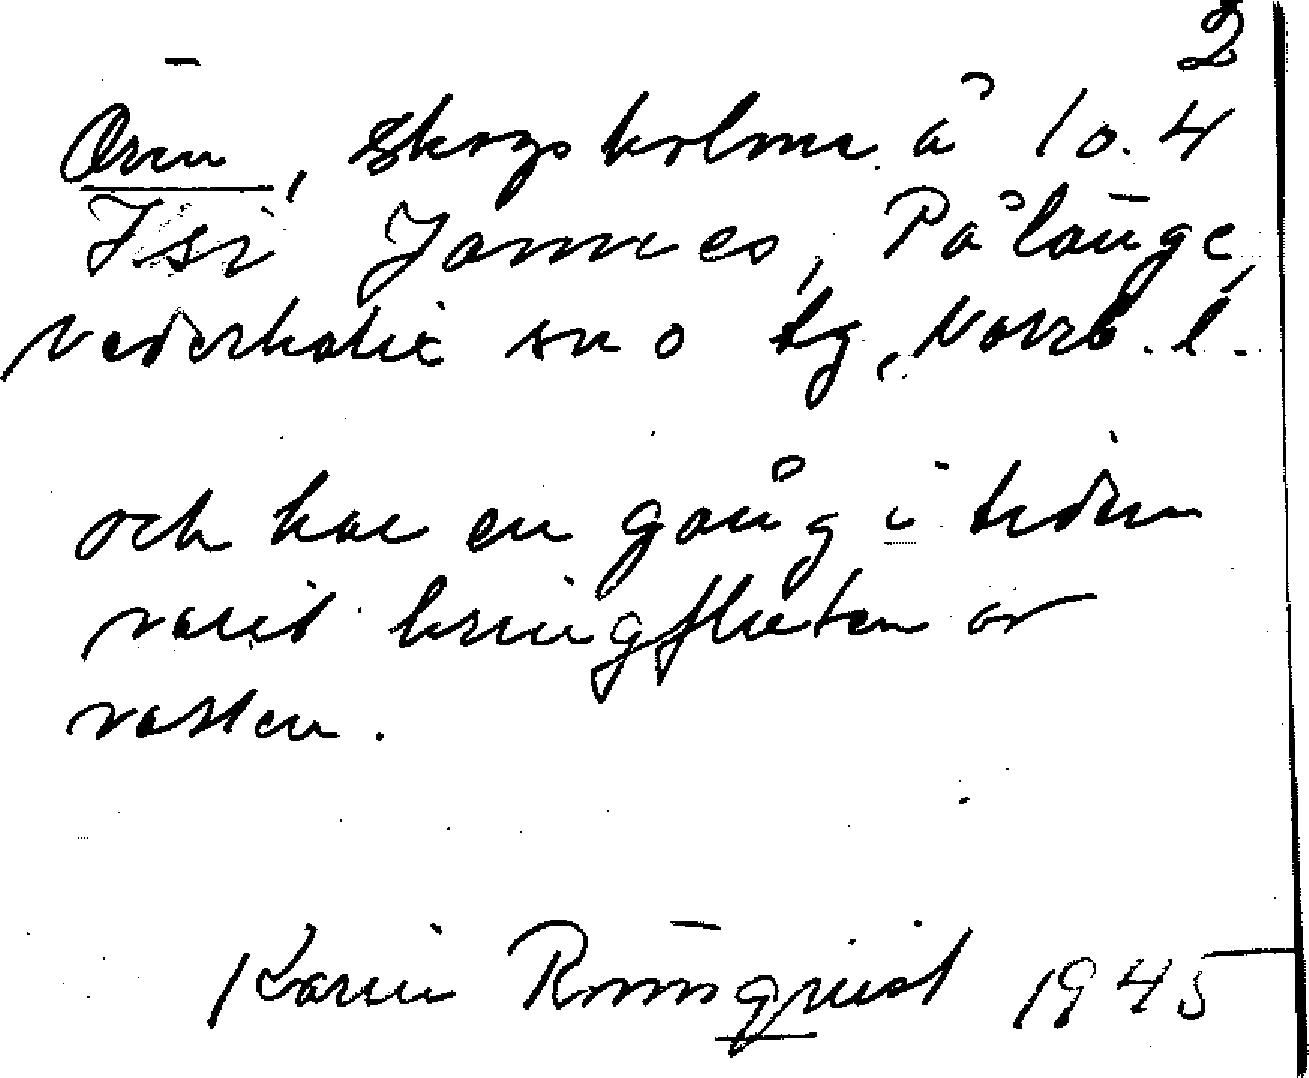 2
Ören, skogsholme å 10.4
Jämnes, Pålänge,
Nederkalix sn o tg, Norrb. l.
och har en gång i tiden
varit kringfluten av
vatten.
Karin Rönnqvist 1945